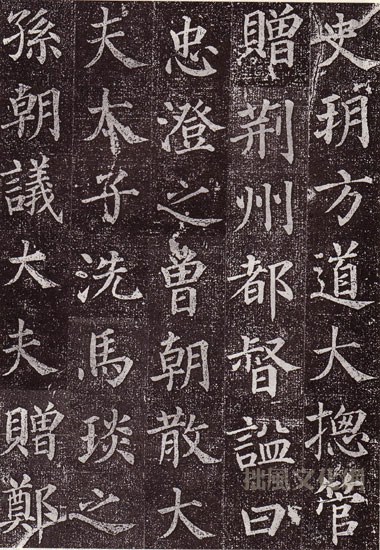 史朔方道大摠管
贈荊州都督謚曰
忠澄之曾朝散大
夫太子洗馬琰之
孫朝議大夫贈鄭
拙風文化網